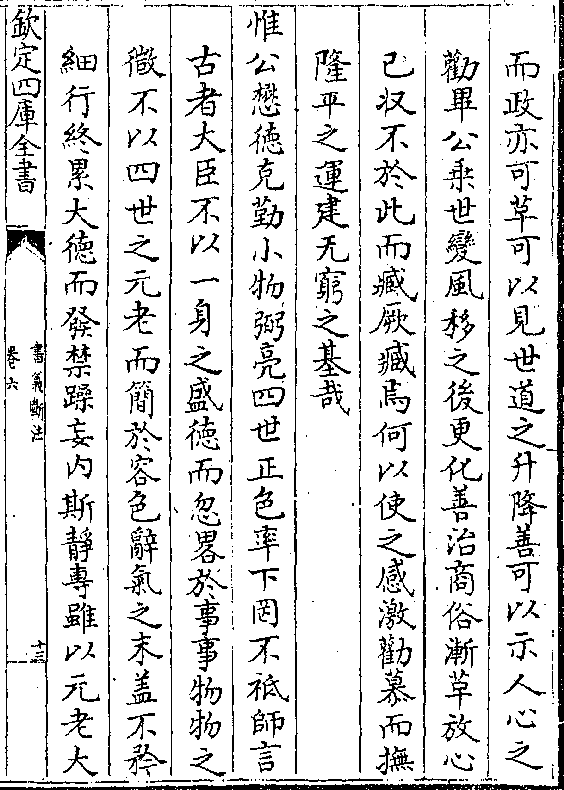 而政亦可草可以見世道之升降善可以示人心之
勸畢公乗世變風移之後更化善治商俗漸草放心
已収不於此而臧厥臧焉何以使之感激勸慕而撫
隆平之運建无窮之基哉
惟公懋德克勤小物弼亮四世正色率下罔不祗師言
古者大臣不以一身之盛德而忽畧於事事物物之
微不以四世之元老而簡於容色辭氣之末盖不矜
細行終累大德而發禁躁妄内斯靜專雖以元老大
欽定四庫全書
書義斷法
卷六
十三